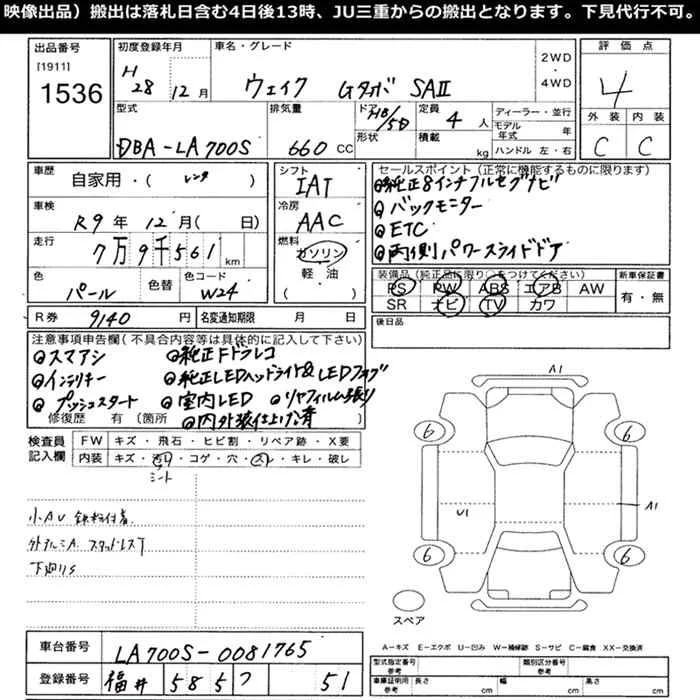 映像出品）搬出は落札日含む4日後13時、JU三重からの搬出となります。下見代行不可。
出品番号 [1911] 1536
初度登録年月 H28年12月
車名・グレード ウェイク Gターボ SAⅡ
2WD・4WD
評価点 4
外装 C 内装 C
型式 DBA-LA700S
排気量 660 CC
ドア形状 HB/5D
定員 4 人
積載 kg
ディーラー・並行
モデル年式 年
ハンドル 左・右
車歴 自家用・(レンタ)
シフト IAT
車検 R9年12月( 日)
冷房 AAC
走行 7万9千561km
燃料 ガソリン 軽油
色 パール 色替 色コード W24
R券 9140 円 名変通知期限 月 日
セールスポイント（正常に機能するものに限ります）
純正8インチフルセグナビ
バックモニター
ETC
両側パワースライドドア
装備品（純正品に限り○をつけてください）
PS PW ABS エアB AW
SR ナビ TV カワ
新車保証書 有・無
後日品
注意事項申告欄（不具合内容等は具体的に記入して下さい）
スマアシ 純正Fドラレコ
インテリキー 純正LEDヘッドライト&LEDフォグ
プッシュスタート 室内LED リヤフィルム張り
修復歴 有〔箇所 内外装仕上げ済
検査員記入欄 FW キズ・飛石・ヒビ割・リペア跡・X要
内装 キズ・汚れ・コゲ・穴・スレ・キレ・破レ
シート
小AU 鉄粉付着
外アルミA スタッドレス
下廻りS
A1
6 6
U1 A1
6 6
スペア
A－キズ E－エクボ U－凹み W－補修跡 S－サビ C－腐食 XX－交換済
車台番号 LA700S-0081765
登録番号 福井 585 ワ 51
型式指定番号 参考 類別区分番号 参考
車庫証明用 参考 長さ cm 幅 cm 高さ cm